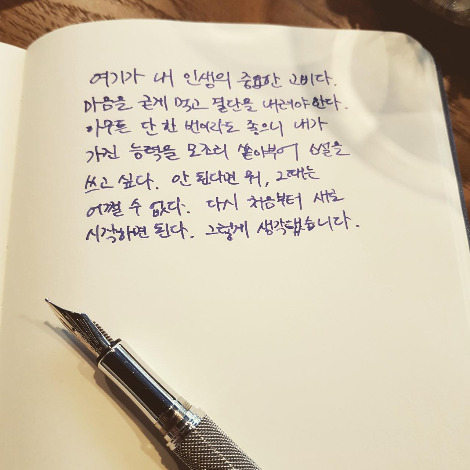 여기가 내 인생의 중요한 고비다.
마음을 굳게 먹고 결단을 내려야한다.
아무튼 단 한 번이라도 좋으니 내가
가진 능력을 모조리 쏟아부어 소설을
쓰고 싶다. 안 된다면 뭐, 그때는
어쩔 수 없다. 다시 처음부터 새로
시작하면 된다. 그렇게 생각했습니다.